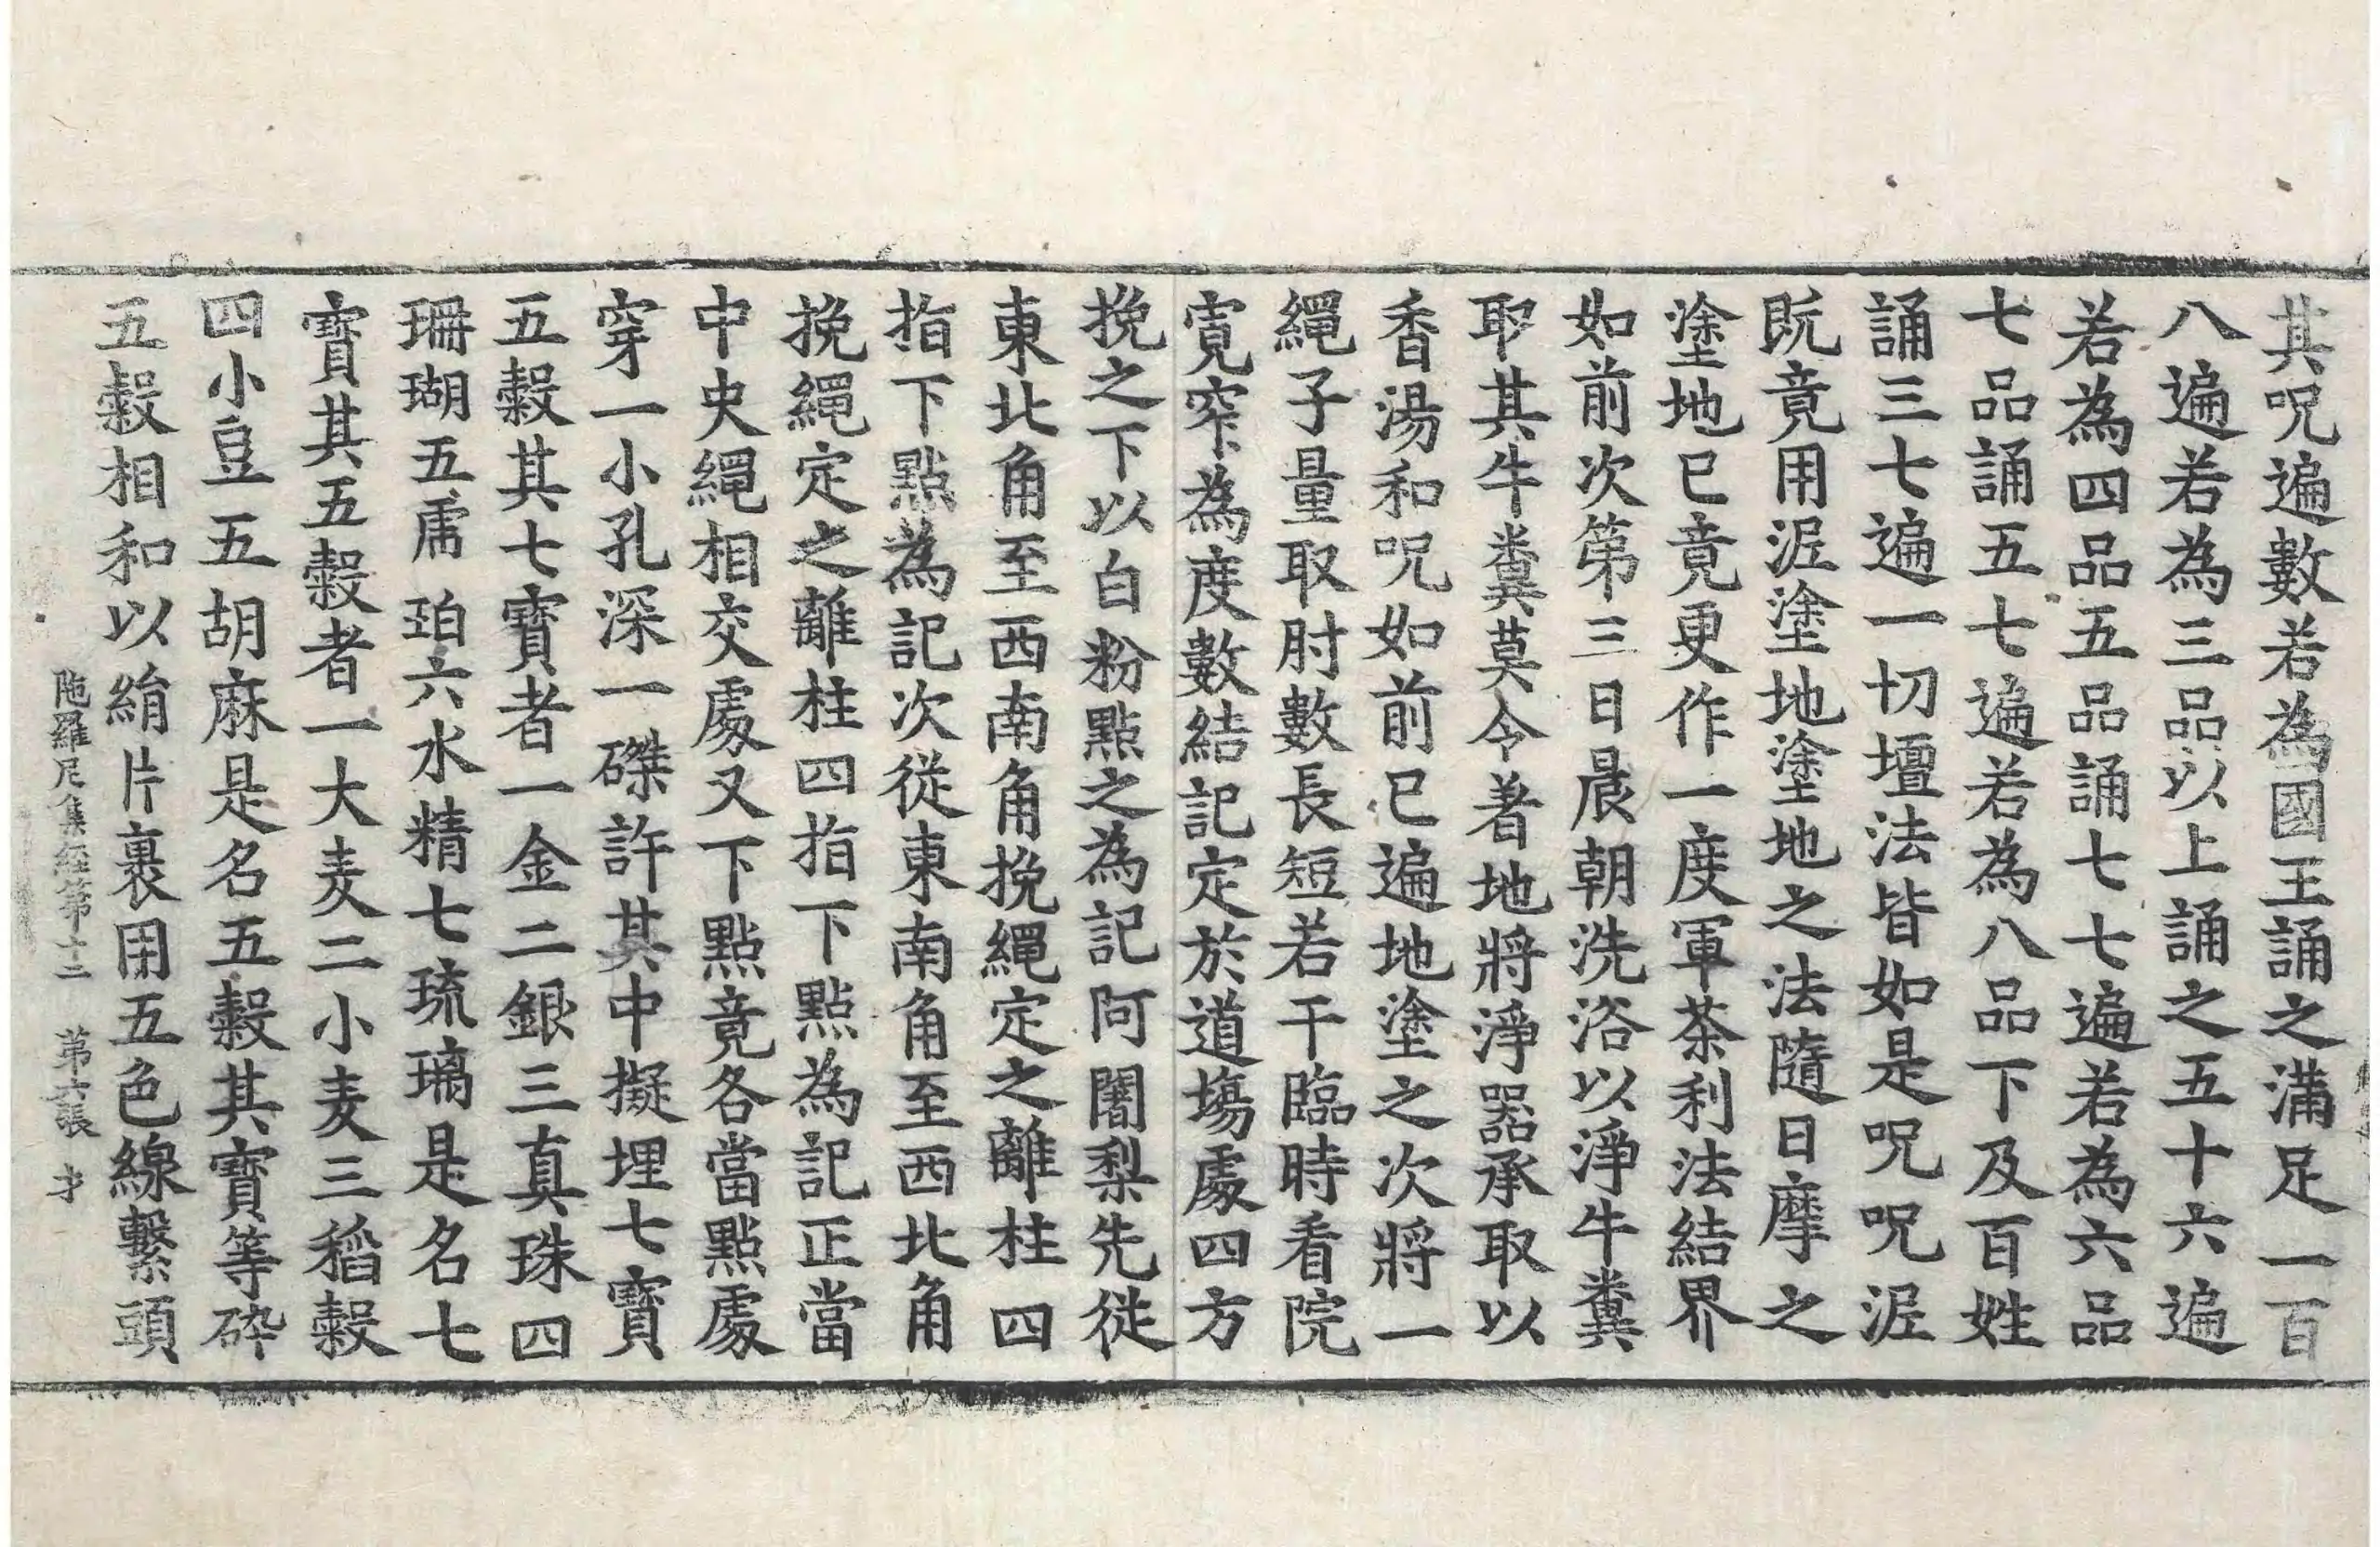 其呪遍數若為國王誦之滿足一百
八遍若為三品以上誦之五十六遍
若為四品五品誦七七遍若為六品
七品誦五七遍若為八品下及百姓
誦三七遍一切壇法皆如是呪呪泥
既竟用泥塗地塗地之法隨日摩之
塗地已竟更作一度軍茶利法結界
如前次第三日晨朝洗浴以淨牛糞
取其牛糞莫令著地將淨器承取以
香湯和呪如前已遍地塗之次將一
繩子量取肘數長短若干臨時看院
寬窄為度數結記定於道場處四方
挽之下以白粉點之為記阿闍梨先從
東北角至西南角挽繩定之離柱四
指下點為記次從東南角至西北角
挽繩定之離柱四指下點為記正當
中央繩相交處又下點竟各當點處
穿一小孔深一磔許其中擬埋七寶
五穀其七寶者一金二銀三真珠四
珊瑚五虎珀六水精七琉璃是名七
寶其五穀者一大麦二小麦三稻穀
四小豆五胡麻是名五穀其寶等碎
五穀相和以絹片裹用五色線繫頭
陁羅尼集經第十二 第六張 才